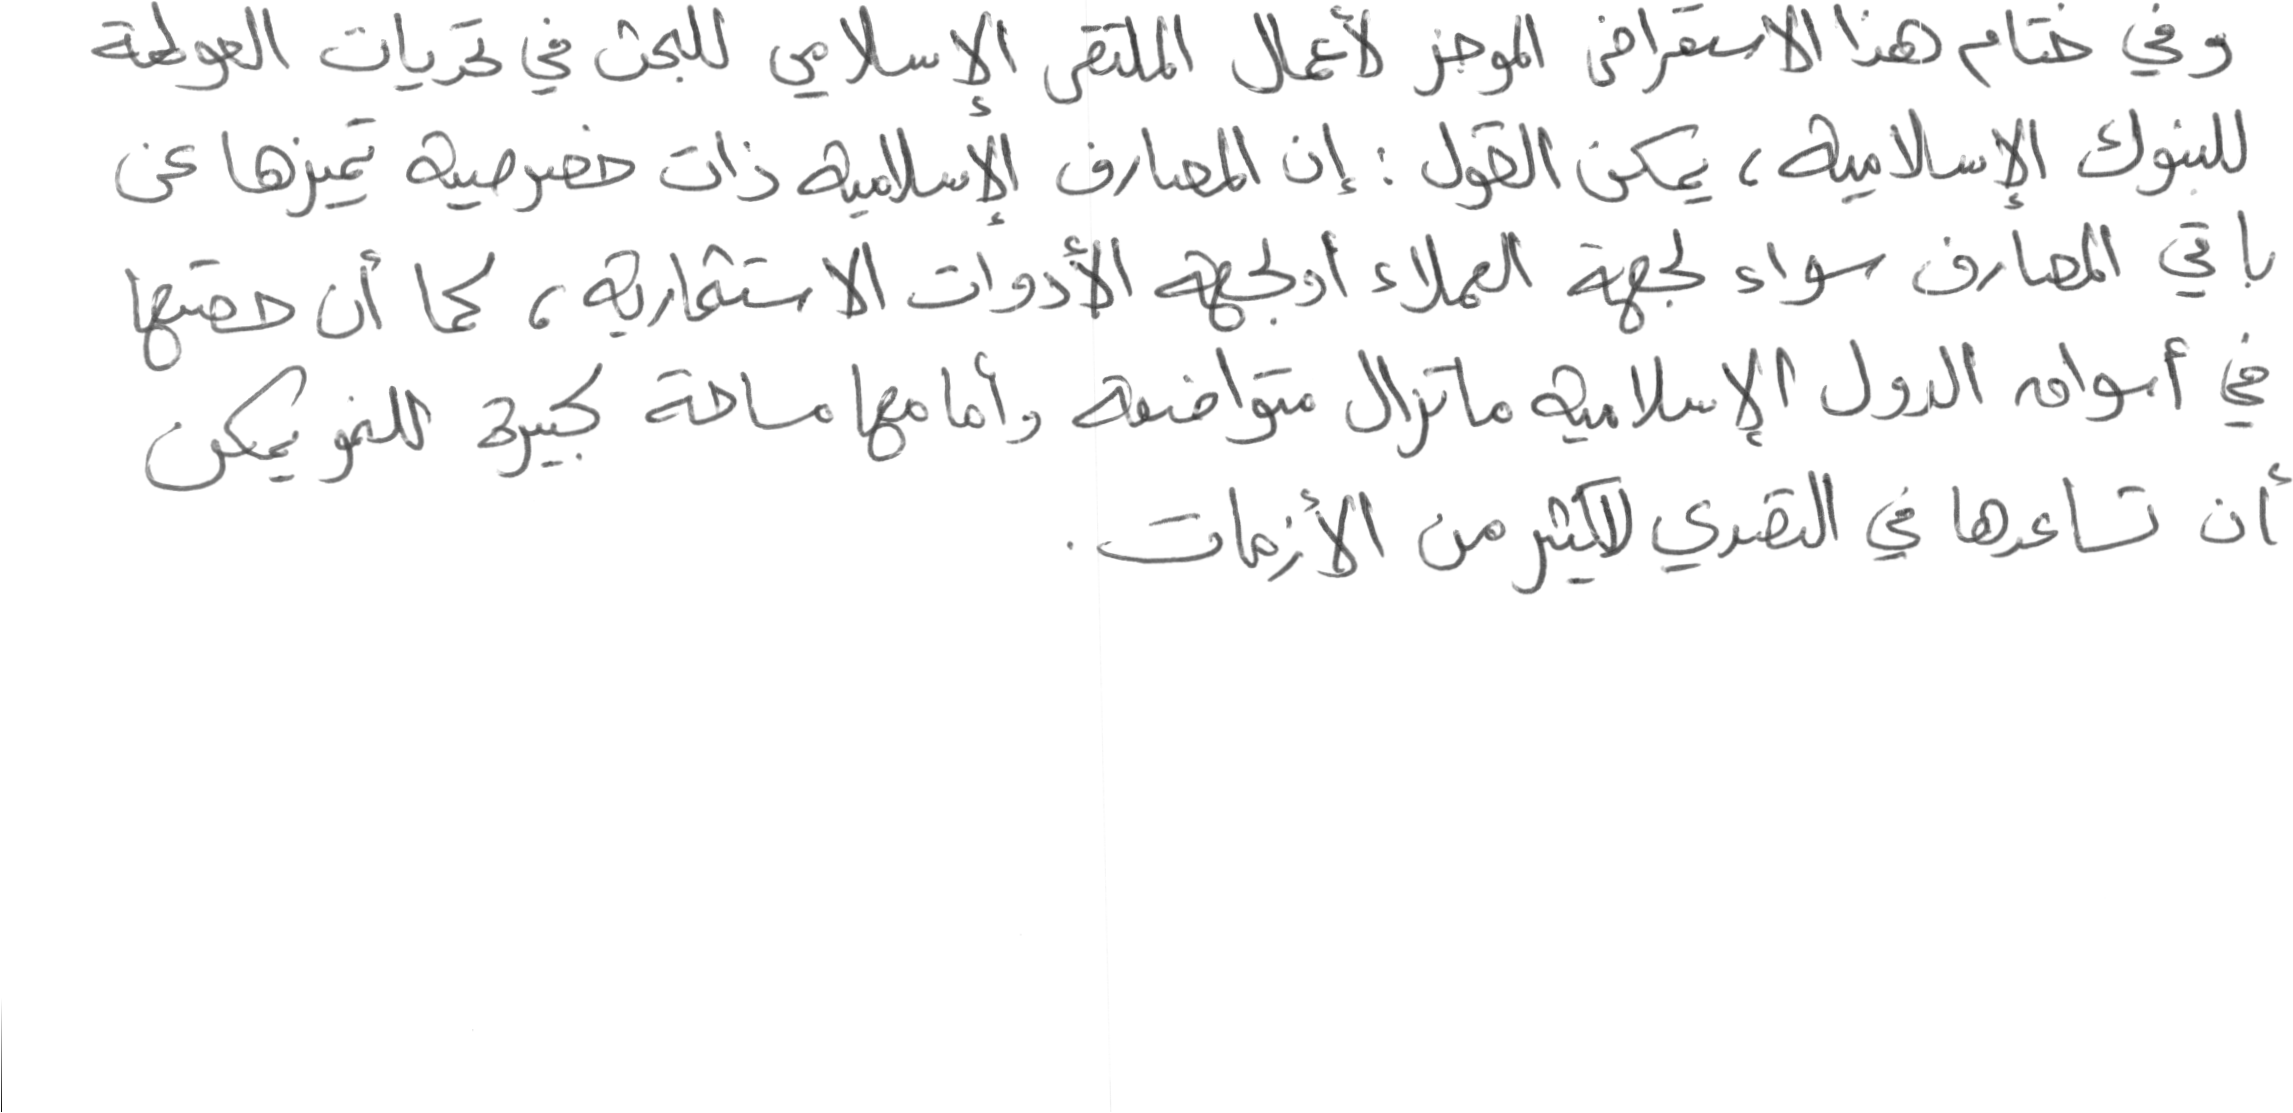 وفي ختام هذا الاستعراض الموجز لأعمال الملتقى الإسلامي للبحث في تحديات العولمة
للبنوك الإسلامية، يمكن القول: إن المصارف الإسلامية ذات خصوصية تميزها عن
باقي المصارف سواء لجهة العملاء أو لجهة الأدوات الاستثمارية، كما أن حصتها
في أسواق الدول الإسلامية ما تزال متواضعة وأمامها مساحة كبيرة للنمو يمكن
أن تساعدها في التصدي لأكثر من الأزمات.